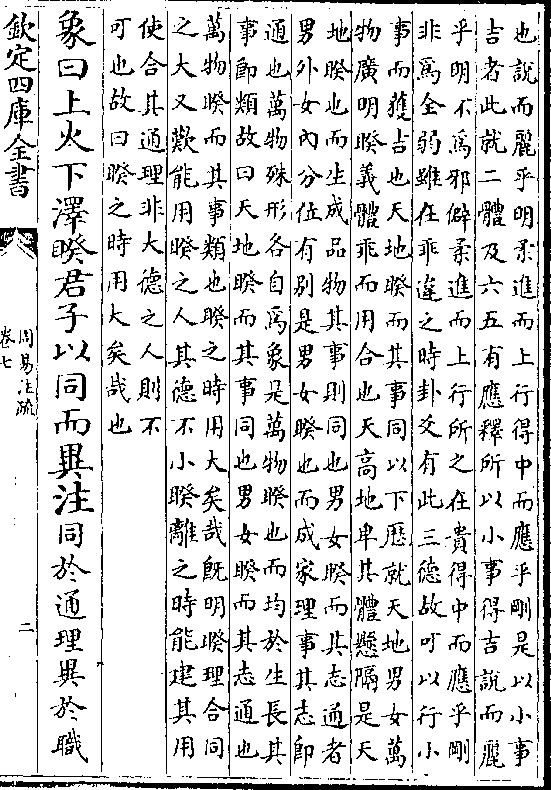 也說而麗乎明柔進而上行得中而應乎剛是以小事
吉者此就二體及六五有應釋所以小事得吉說而麗
乎明不為邪僻柔進而上行所之在貴得中而應乎剛
非為全弱雖在乖違之時卦爻有此三德故可以行小
事而獲吉也天地睽而其事同以下歷就天地男女萬
物廣明睽義體乖而用合也天高地卑其體懸隔是天
地睽也而生成品物其事則同也男女睽而其志通者
男外女內分位有別是男女睽也而成家理事其志即
通也萬物殊形各自為象是萬物睽也而均於生長其
事即類故曰天地睽而其事同也男女睽而其志通也
萬物睽而其事類也睽之時用大矣哉既明睽理合同
之大又歎能用睽之人其德不小睽離之時能建其用
使合其通理非大德之人則不
可也故曰睽之時用大矣哉也
象曰上火下澤睽君子以同而異注同於通理異於職
欽定四庫全書
周易注疏
卷七
二